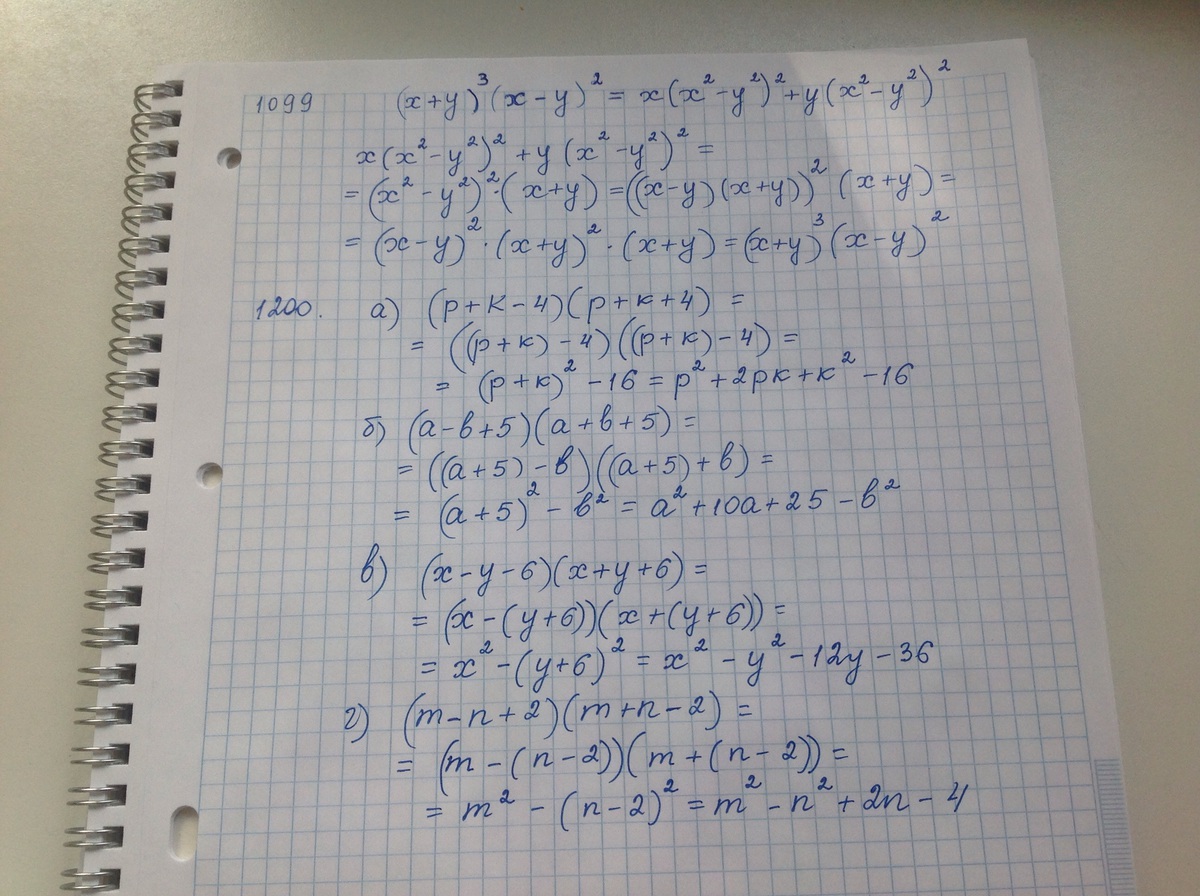 1099 (x+y)³(x-y)² = x(x²-y²)²+y(x²-y²)²
x(x²-y²)² + y(x²-y²)² =
= (x²-y²)²·(x+y) = ((x-y)(x+y))² (x+y) =
= (x-y)²·(x+y)²·(x+y) = (x+y)³(x-y)²
1200. а) (p+k-4)(p+k+4) =
= ((p+k)-4)((p+k)-4) =
= (p+k)² - 16 = p²+2pk+k²-16
б) (a-b+5)(a+b+5) =
= ((a+5)-b)((a+5)+b) =
= (a+5)² - b² = a²+10a+25-b²
в) (x-y-6)(x+y+6) =
= (x-(y+6))(x+(y+6)) =
= x²-(y+6)² = x²-y²-12y-36
г) (m-n+2)(m+n-2) =
= (m-(n-2))(m+(n-2)) =
= m² - (n-2)² = m²-n²+2n-4